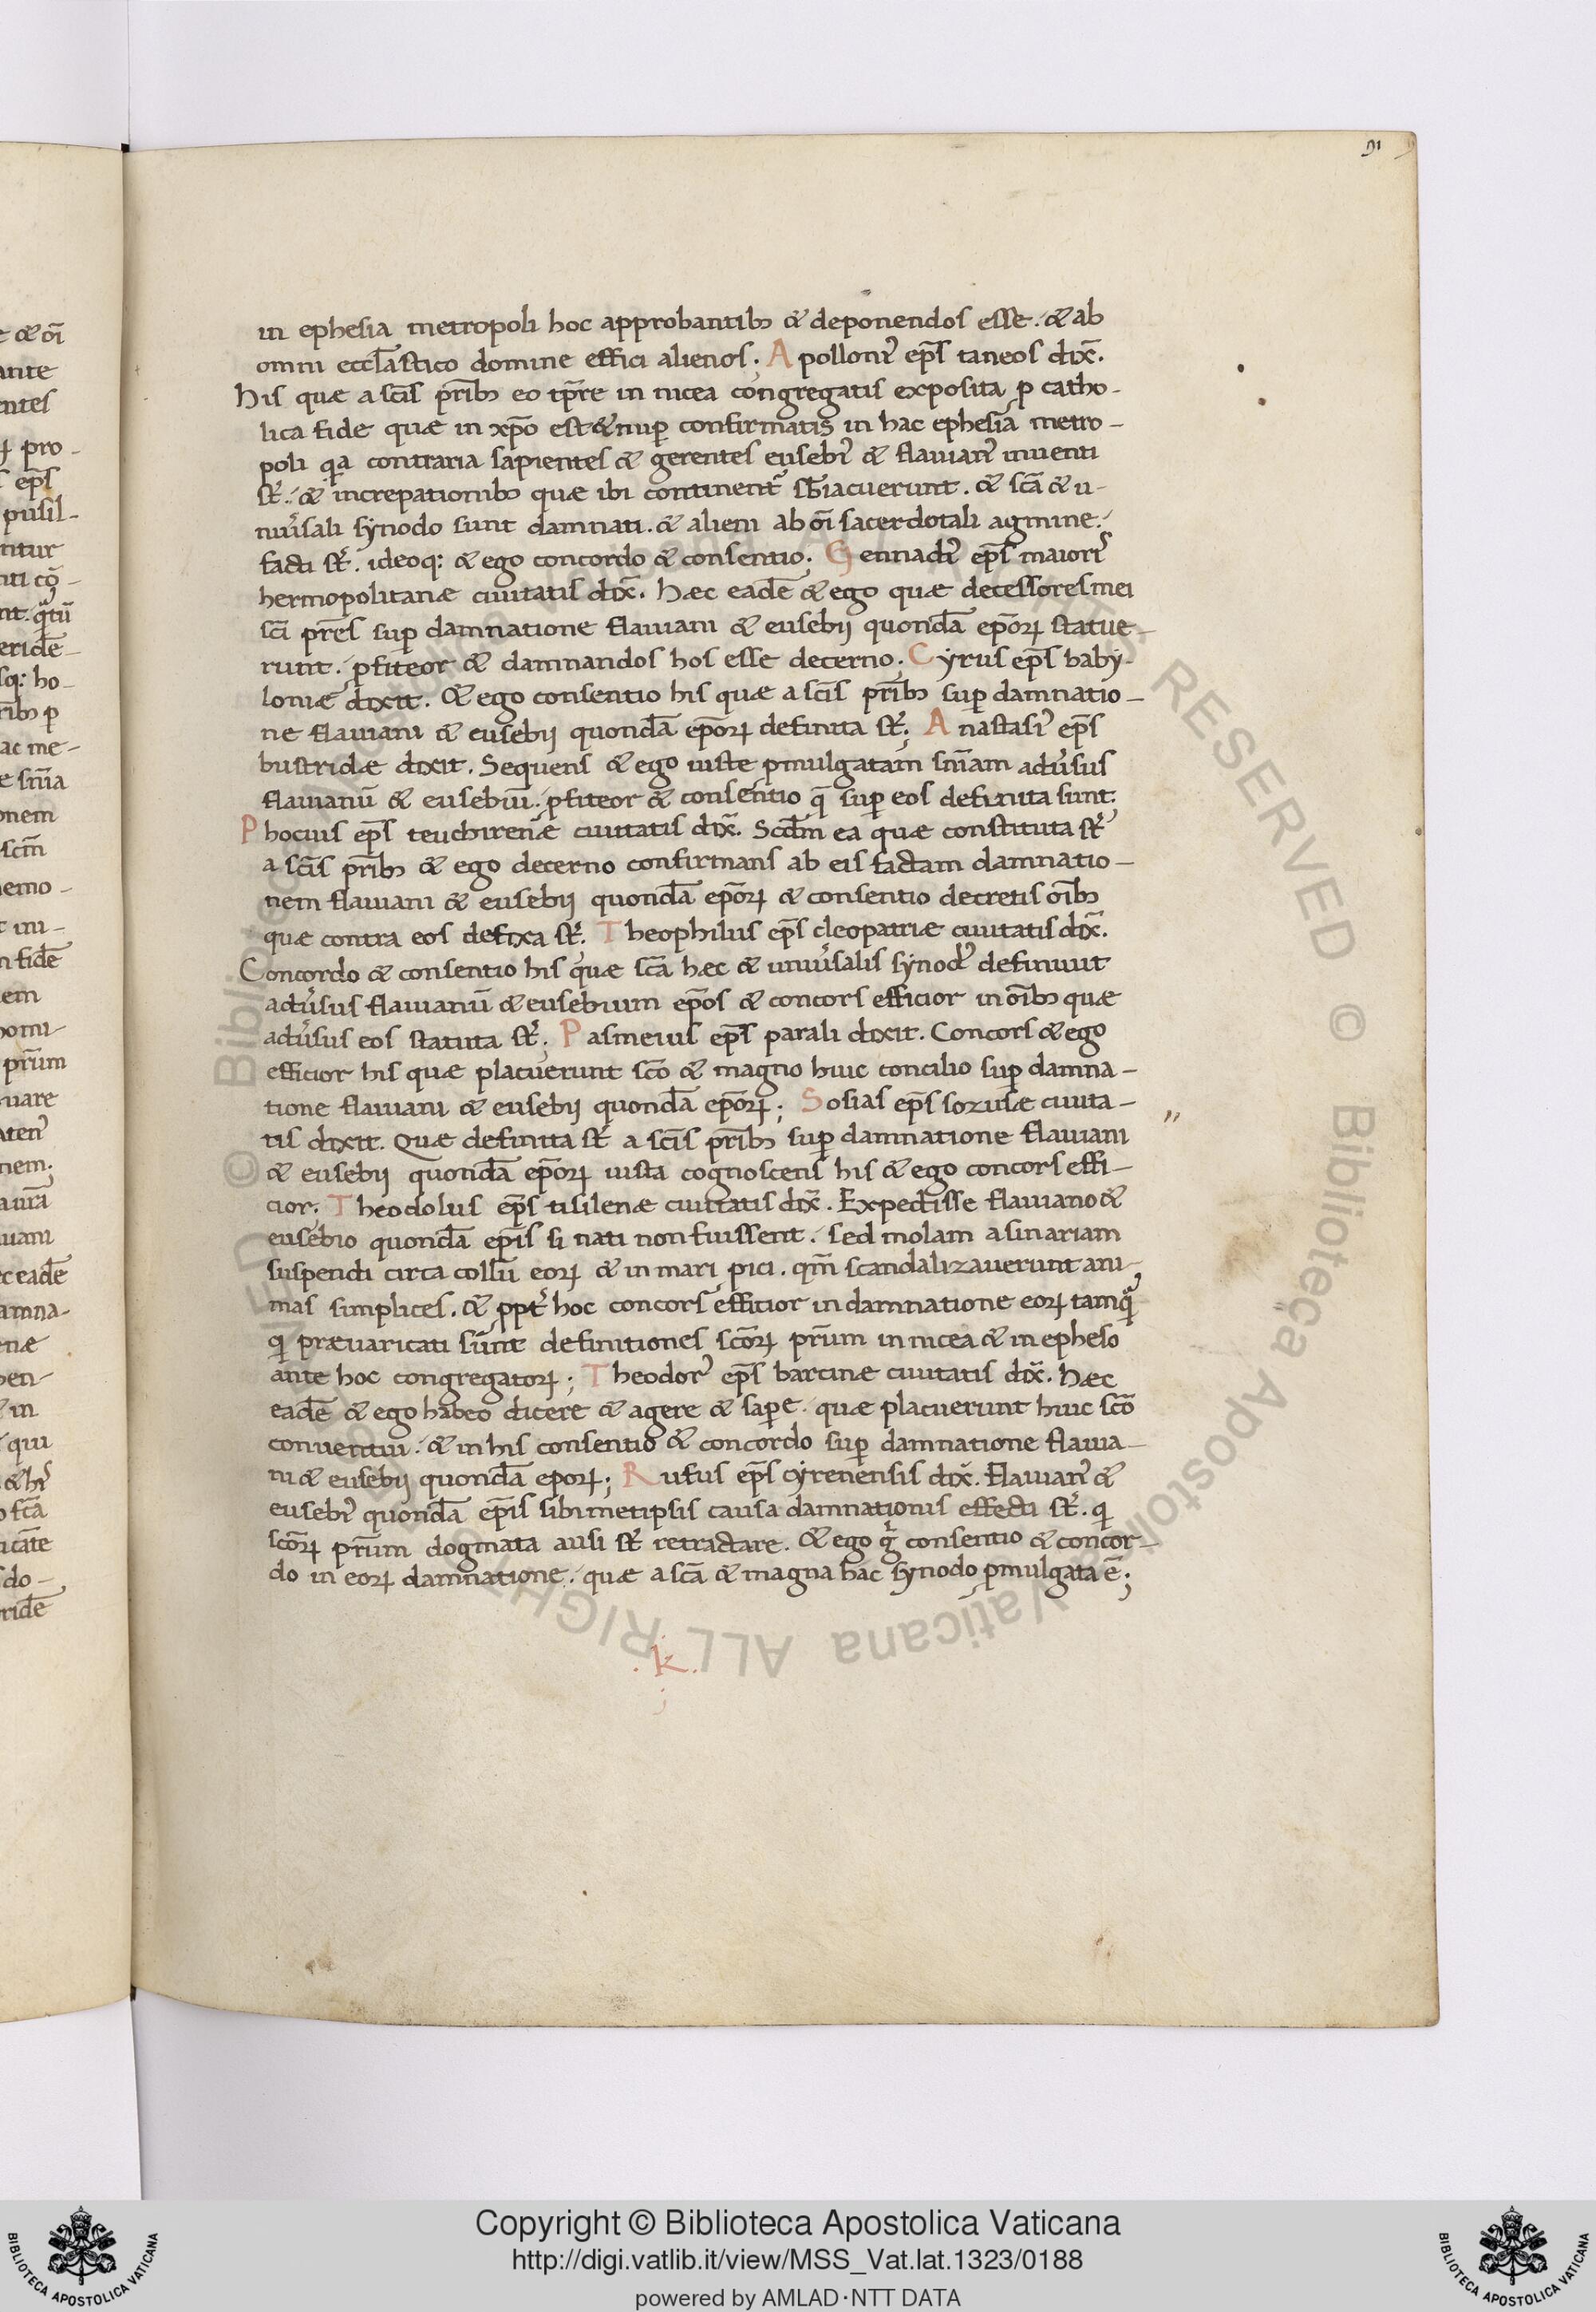 91
in ephesia metropoli hoc approbantibꝫ & deponendos esse. & ab
omni eccl̄astico domine effici alienos; Apolloni᾽ ep̄s taneos dix̄.
His quæ a sc̄is pr̄ibꝫ eo tp̄re in nicea congregatis exposita ꝑ catho-
lica fide quæ in xp̄o est & nuꝑ confirmatis in hac ephesia metro-
poli qa contraria sapientes & gerentes eusebi᾽ & flavian᾽ inventi
st᾽. & increpationibꝫ quæ ibi continent᾽ sb̄iacuerunt. & sc̄a & u-
niv᾽sali synodo sunt damnati. & alieni ab oī sacerdotali agmine.
facti st᾽. ideoq: & ego concordo & consentio; Gennadi᾽ ep̄s maioris
hermopolitanæ civitatis dix̄. Hæc eadē & ego quæ decessores mei
sc̄i pr̄es suꝑ damnatione flaviani & eusebij quondā ep̄oꝝ statue-
runt. ꝓfiteor & damnandos hos esse decerno; Cyrus ep̄s baby-
loniæ dixit. & ego consentio his quæ a sc̄is pr̄ibꝫ suꝑ damnatio-
ne flaviani & eusebij quondā ep̄oꝝ definita st᾽; Anastasi᾽ ep̄s
bustridæ dixit. Sequens & ego iuste ꝓmulgatam sn̄iam adv᾽sus
flavianū & eusebiū. ꝓfiteor & consentio q̄ suꝑ eos definita sunt.
Phocius ep̄s teuchirenæ civitatis dix̄. Scd̄m ea quæ constituta st᾽
a sc̄is pr̄ibꝫ & ego decerno confirmans ab eis factam damnatio-
nem flaviani & eusebij quondā ep̄oꝝ & consentio decretis oībꝫ
quæ contra eos defixa st᾽. Theophilus ep̄s cleopatriæ civitatis dix̄.
Concordo & consentio his quæ sc̄a hæc & univ᾽salis synod᾽ definiuit
adv᾽sus flavianū & eusebium ep̄os & concors efficior in oībꝫ quæ
adv᾽sus eos statuta st᾽; Pasmeius ep̄s parali dixit. Concors & ego
efficior his quæ placuerunt sc̄o & magno huic concilio suꝑ damna-
tione flaviani & eusebij quondā ep̄oꝝ; Sosias ep̄s sozusæ civita-
tis dixit. Quæ definita st᾽ a sc̄is pr̄ibꝫ suꝑ damnatione flaviani
& eusebij quondā ep̄oꝝ iusta cognoscens his & ego concors effi-
cior; Theodolus ep̄s tisilenæ civitatis dix̄. Expedisse flaviano &
eusebio quondā ep̄is si nati non fuissent. sed molam asinariam
suspendi circa collū eoꝝ & in mari pici. qm̄ scandalizaverunt ani-
mas simplices. & ꝓpt᾽ hoc concors efficior in damnatione eoꝝ tamq̄
qi prævaricati sunt definitiones sc̄oꝝ pr̄um in nicea & in epheso
ante hoc congregatoꝝ; Theodor᾽ ep̄s barcinæ civitatis dix̄. Hæc
eadē & ego habeo dicere & agere & saꝑe. quæ placuerunt huic sc̄o
conventui. & in his consentio & concordo suꝑ damnatione flavia-
ni & eusebij quondā epoꝝ; Rufus ep̄s cyrenensis dix̄. flavian᾽ &
eusebi᾽ quondā ep̄is sibimetipsis causa damnationis effecti st᾽. qi
sc̄oꝝ pr̄um dogmata ausi st᾽ retractare. & ego g᾽ consentio & concor-
do in eoꝝ damnatione. quæ a sc̄a & magna hac synodo ꝓmulgata ē;
.k.
Copyright © Biblioteca Apostolica Vaticana
http://digi.vatlib.it/view/MSS_Vat.lat.1323/0188
powered by AMLAD·NTT DATA